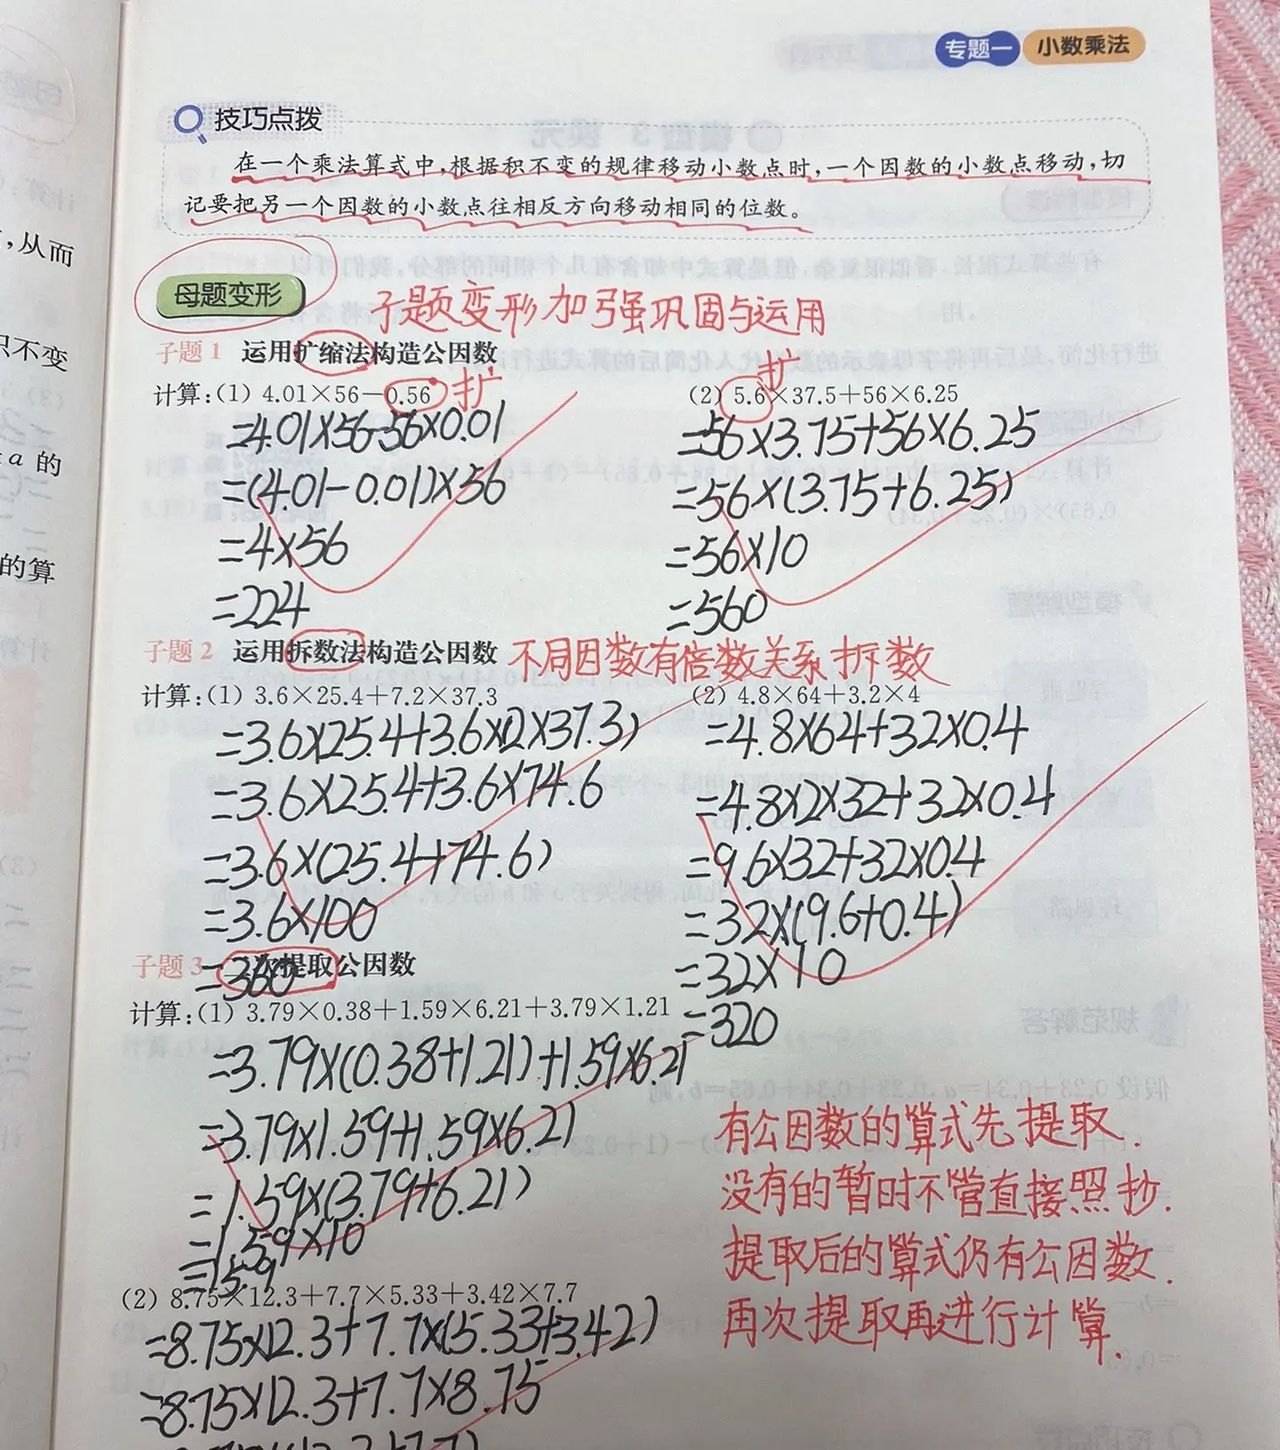 专题一 小数乘法
技巧点拨
在一个乘法算式中,根据积不变的规律移动小数点时,一个因数的小数点移动,切
记要把另一个因数的小数点往相反方向移动相同的位数。
,从而
只不变
a 的
的算
母题变形
子题变形加强巩固与运用
子题1 运用扩缩法构造公因数
计算:(1) 4.01×56-0.56
扩
=4.01×56-56×0.01
=(4.01-0.01)×56
=4×56
=224
扩
(2) 5.6×37.5+56×6.25
=56×3.75+56×6.25
=56×(3.75+6.25)
=56×10
=560
子题2 运用拆数法构造公因数
不同因数有倍数关系拆数
计算:(1) 3.6×25.4+7.2×37.3
=3.6×25.4+3.6×(2×37.3)
=3.6×25.4+3.6×74.6
=3.6×(25.4+74.6)
=3.6×100
=360
(2) 4.8×64+3.2×4
=4.8×64+32×0.4
=4.8×2×32+32×0.4
=9.6×32+32×0.4
=32×(9.6+0.4)
=32×10
=320
子题3 二次提取公因数
计算:(1) 3.79×0.38+1.59×6.21+3.79×1.21
=3.79×(0.38+1.21)+1.59×6.21
=3.79×1.59+1.59×6.21
=1.59×(3.79+6.21)
=1.59×10
=15.9
(2) 8.75×12.3+7.7×5.33+3.42×7.7
=8.75×12.3+7.7×(5.33+3.42)
=8.75×12.3+7.7×8.75
有公因数的算式先提取.
没有的暂时不管直接照抄.
提取后的算式仍有公因数.
再次提取再进行计算.